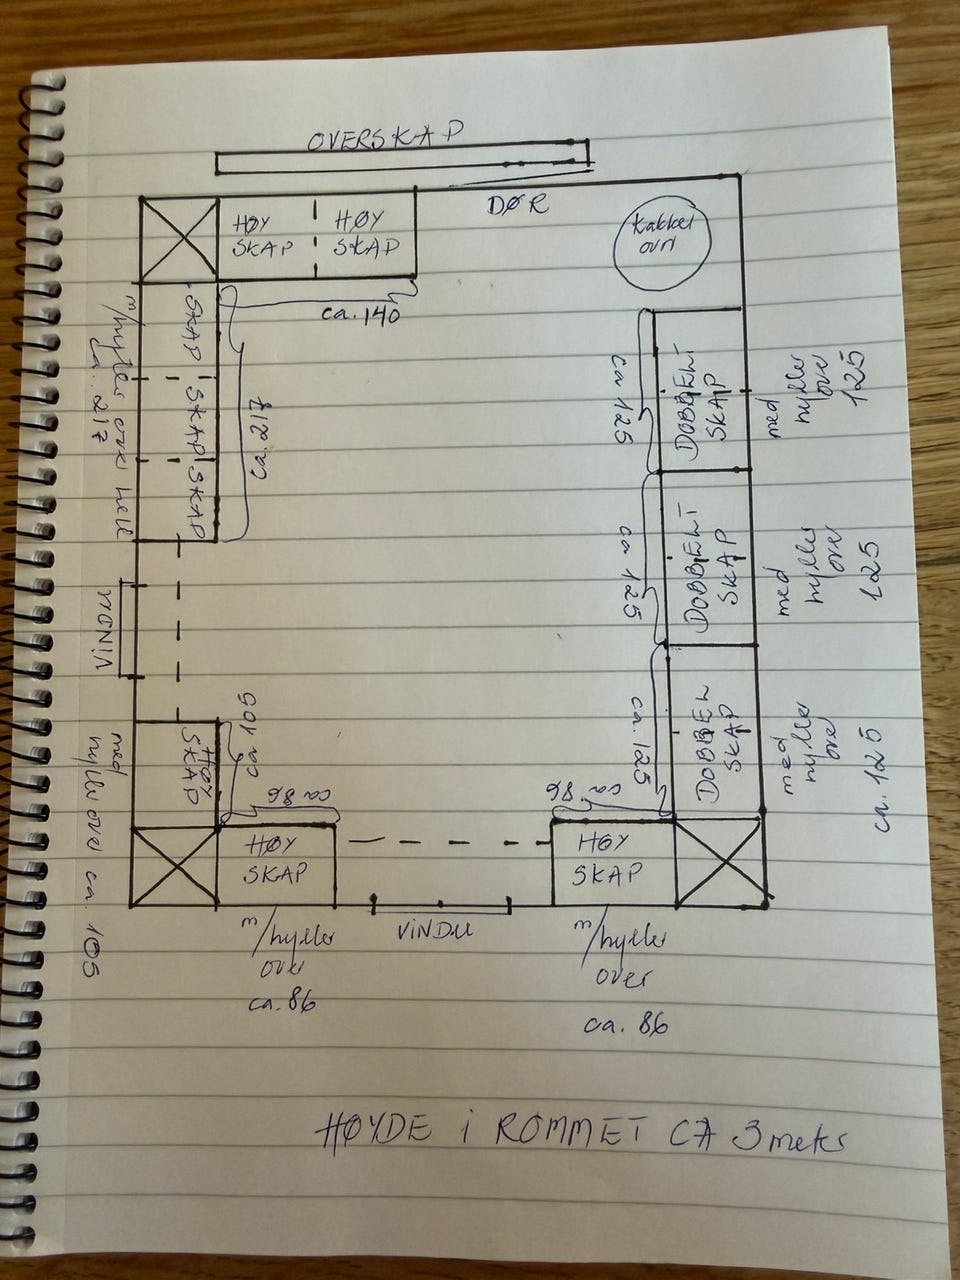 OVERSKAP
DØR
HØY
SKAP
HØY
SKAP
Kakkel
ovn
ca. 140
SKAP
SKAP
SKAP
m/hylles over hele
ca. 217
ca. 217
DOBBELT
SKAP
ca 125
med
hylle
over
125
DOBBELT
SKAP
ca 125
med
hylle
over
125
DOBBEL
SKAP
ca. 125
med
hylle
over
ca. 125
VINDU
HØY
SKAP
ca 105
med
hylle over ca. 105
ca 86
ca 86
HØY
SKAP
HØY
SKAP
m/hyller
over
ca. 86
VINDU
m/hyller
over
ca. 86
HØYDE i ROMMET CA 3 meter